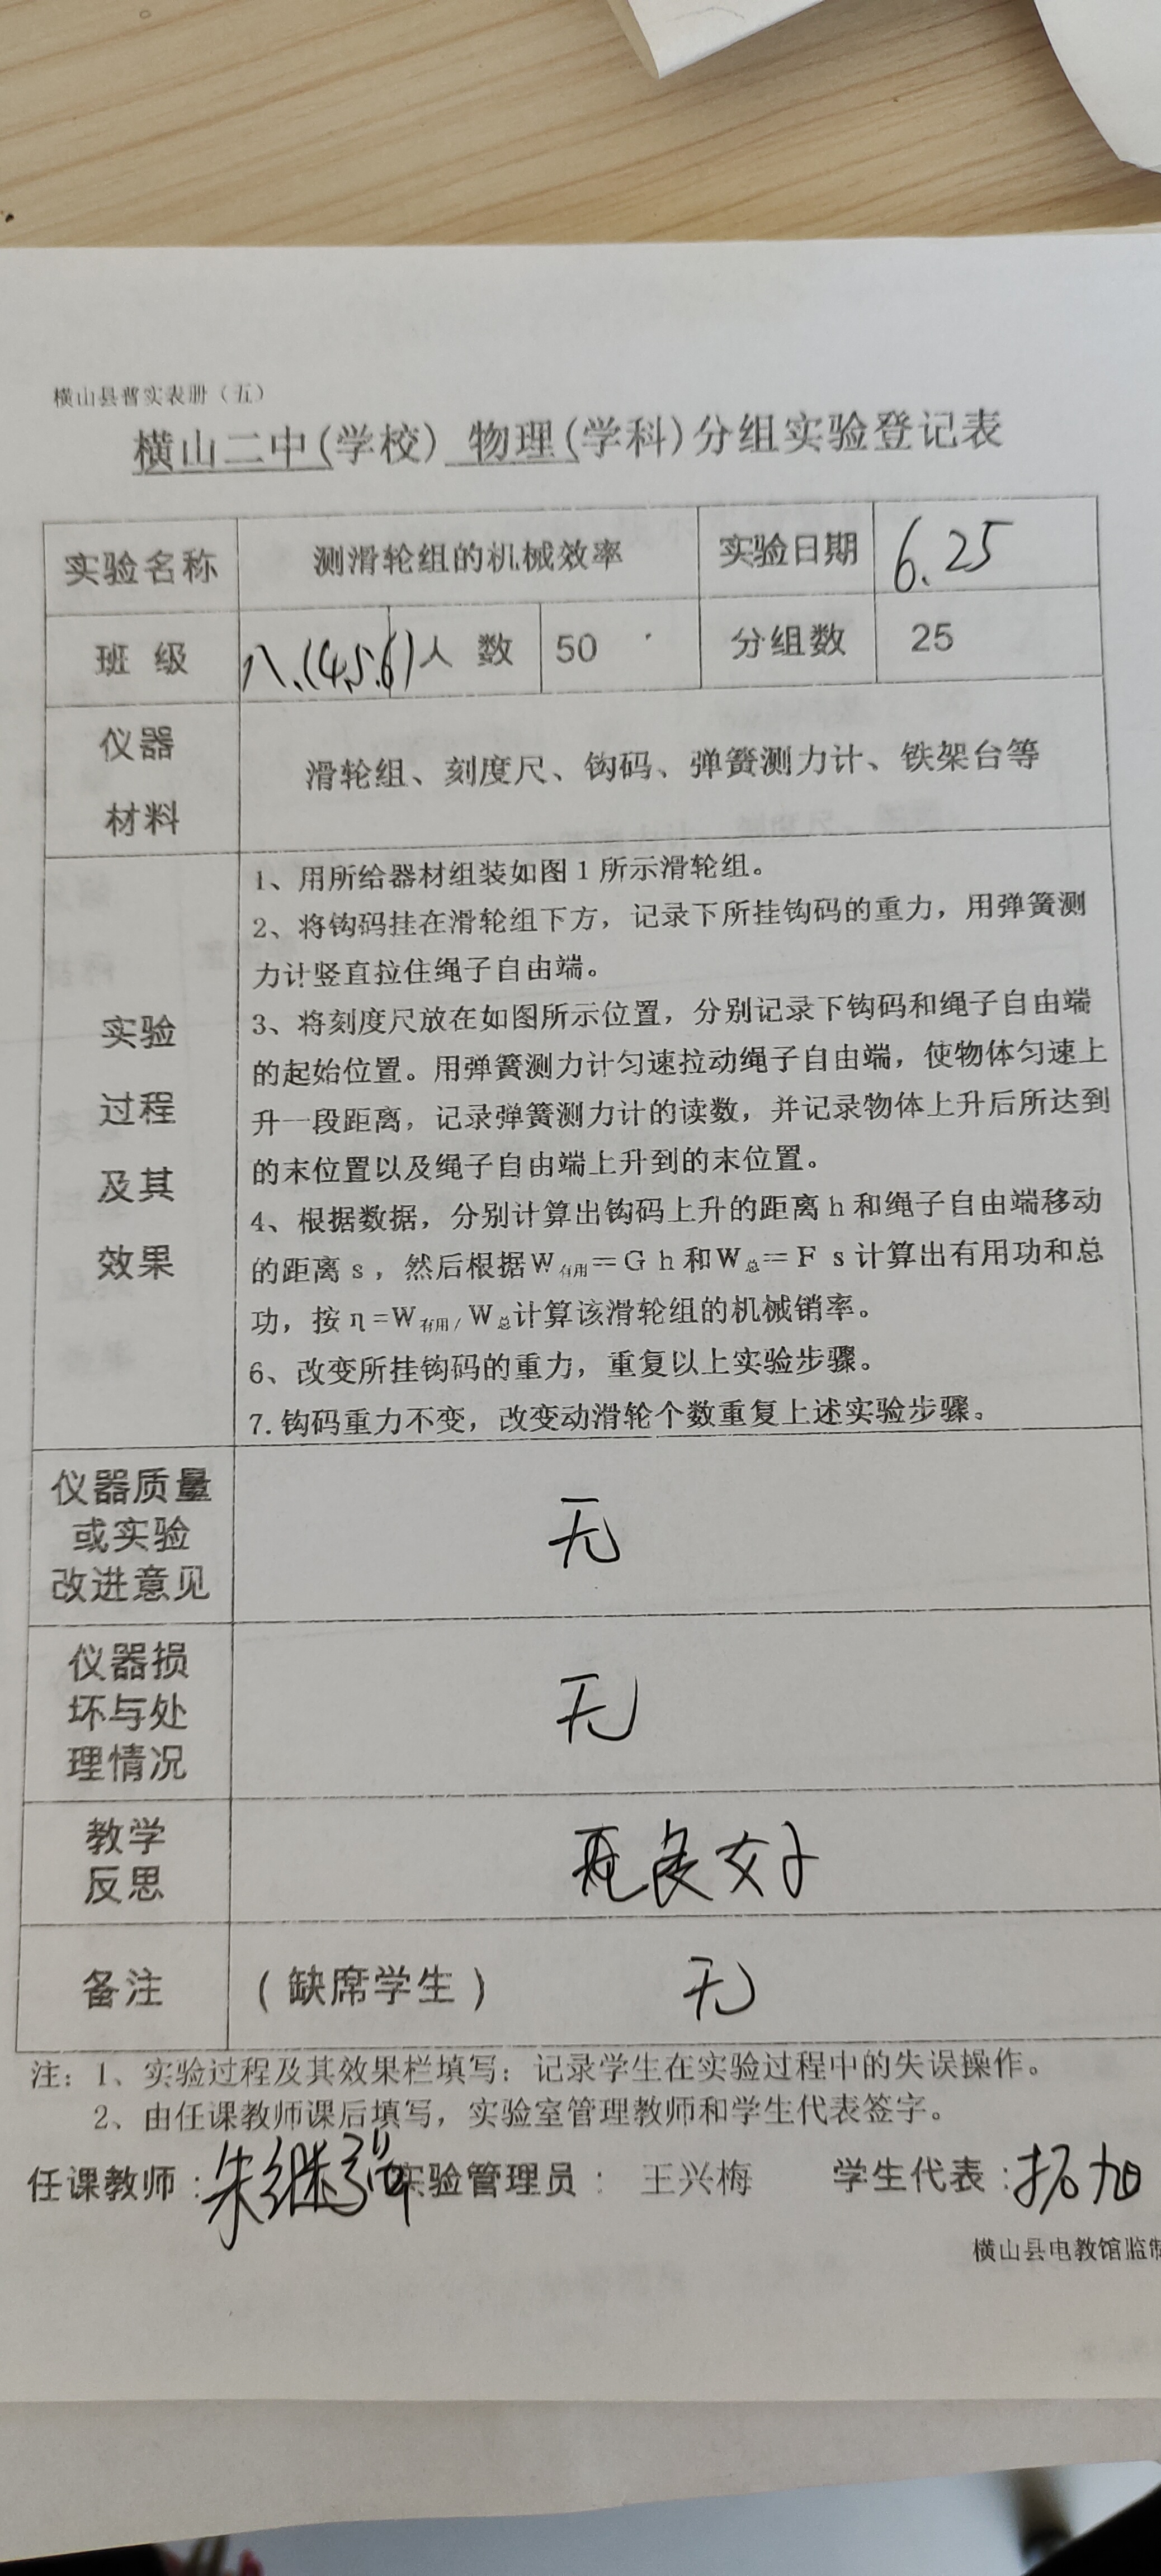 横山县普实表册（五）
横山二中(学校) 物理(学科)分组实验登记表
实验名称 测滑轮组的机械效率 实验日期 6.25
班 级 八.(4.5.6) 人 数 50 分组数 25
仪器
材料
滑轮组、刻度尺、钩码、弹簧测力计、铁架台等
实验
过程
及其
效果
1、用所给器材组装如图1所示滑轮组。
2、将钩码挂在滑轮组下方，记录下所挂钩码的重力，用弹簧测
力计竖直拉住绳子自由端。
3、将刻度尺放在如图所示位置，分别记录下钩码和绳子自由端
的起始位置。用弹簧测力计匀速拉动绳子自由端，使物体匀速上
升一段距离，记录弹簧测力计的读数，并记录物体上升后所达到
的末位置以及绳子自由端上升到的末位置。
4、根据数据，分别计算出钩码上升的距离h和绳子自由端移动
的距离s，然后根据W有用＝G h和W总＝F s计算出有用功和总
功，按η=W有用/W总计算该滑轮组的机械销率。
6、改变所挂钩码的重力，重复以上实验步骤。
7.钩码重力不变，改变动滑轮个数重复上述实验步骤。
仪器质量
或实验
改进意见
无
仪器损
坏与处
理情况
无
教学
反思
好
备注 （缺席学生） 无
注：1、实验过程及其效果栏填写：记录学生在实验过程中的失误操作。
2、由任课教师课后填写，实验室管理教师和学生代表签字。
任课教师：朱继 实验管理员： 王兴梅 学生代表：拓加
横山县电教馆监制